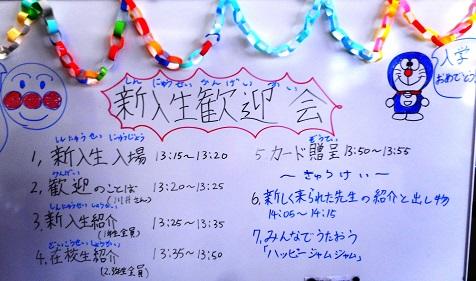 しんにゅうせい かんげい かい
新入生歓迎会
入学
おめでとう
しんにゅうせい にゅうじょう
1、新入生入場 13:15〜13:20
かんげい
2、歓迎のことば 13:20〜13:25
しんにゅうせい しょうかい
3、新入生紹介 13:25〜13:35
(1年生全員)
ざいこうせい しょうかい
4、在校生紹介 13:35〜13:50
(2.3年生全員)
ぞうてい
5、カード贈呈 13:50〜13:55
〜きゅうけい〜
6、新しく来られた先生の紹介と出し物
14:05〜14:15
7、みんなでうたおう
「ハッピージャムジャム」